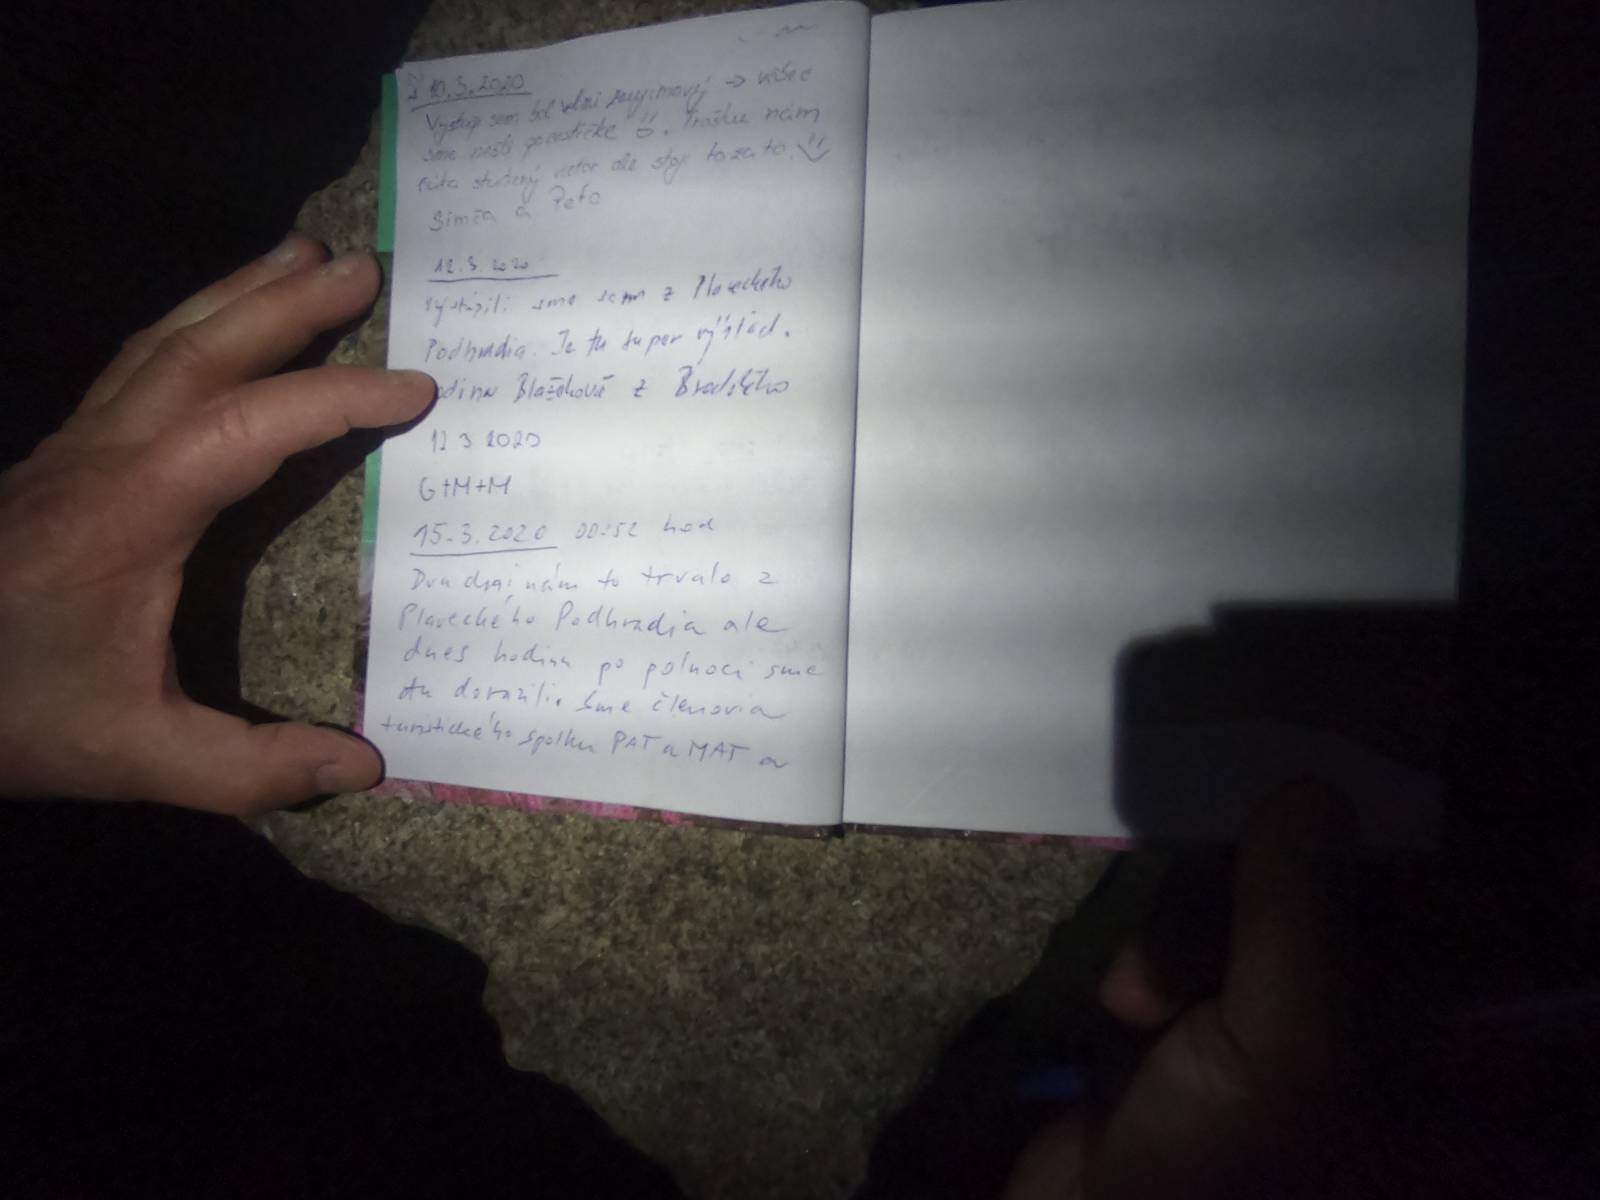 10.3.2020
Výstup sem bol velmi zaujímavý → vôbec
sme nešli po cestičke. Trošku nám
fúka studený vietor ale stojí to za to.
Simča a Peťo
12.3.2020
Vystúpili sme sem z Plaveckého
Podhradia. Je tu super výhlad.
Rodina Blažekové z Brodského
12 3 2020
G+M+M
15.3.2020 00:52 hod
Dva dni nám to trvalo z
Plaveckého Podhradia ale
dnes hodinu po polnoci sme
tu dorazili. Sme členovia
turistického spolku PAT a MAT a